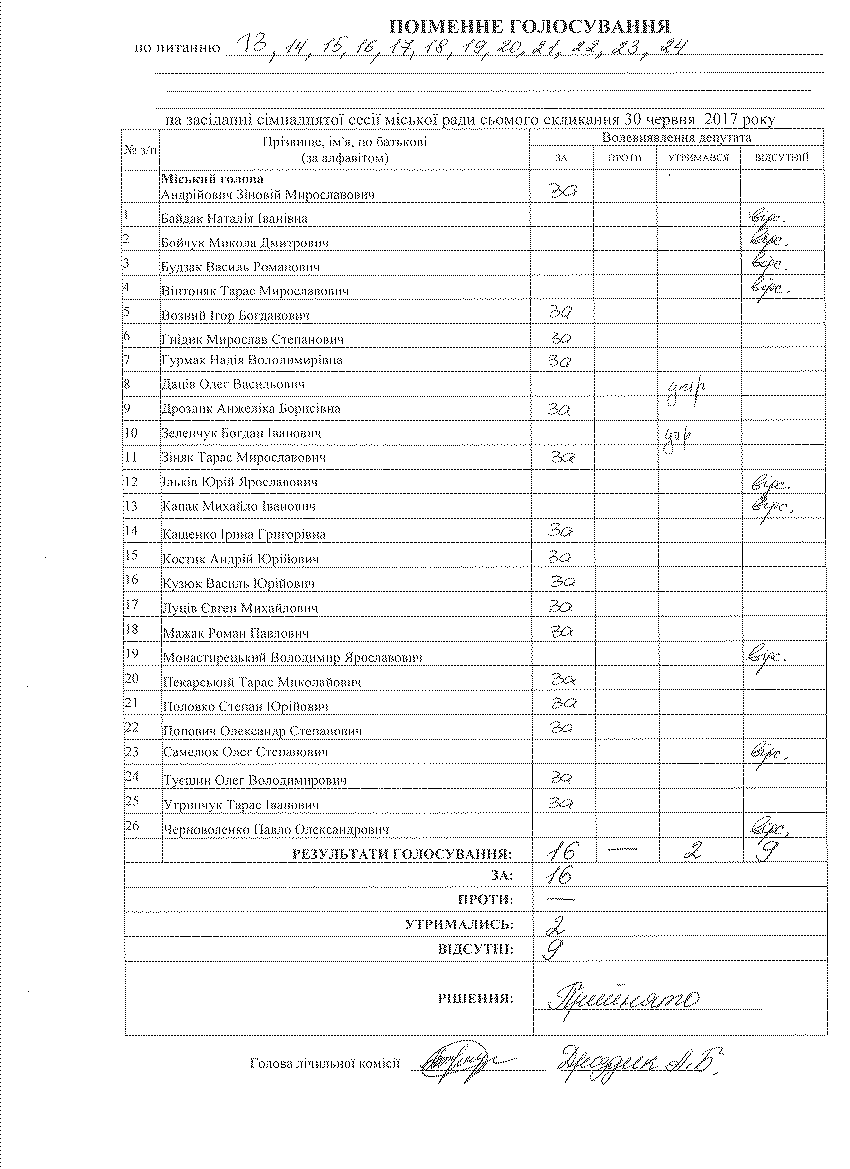 ПОІМЕННЕ ГОЛОСУВАННЯ
по питанню 13, 14, 15, 16, 17, 18, 19, 20, 21, 22, 23, 24
на засіданні сімнадцятої сесії міської ради сьомого скликання 30 червня 2017 року
№ з/п Прізвище, ім'я, по батькові (за алфавітом) Волевиявлення депутата
ЗА ПРОТИ УТРИМАВСЯ ВІДСУТНІЙ
Міський голова
Андрійович Зіновій Мирославович за
1 Байдак Наталія Іванівна відс.
2 Бойчук Микола Дмитрович відс.
3 Будзак Василь Романович відс.
4 Вінтоняк Тарас Мирославович відс.
5 Возний Ігор Богданович за
6 Гнідик Мирослав Степанович за
7 Гурмак Надія Володимирівна за
8 Даців Олег Васильович утр
9 Дроздик Анжеліка Борисівна за
10 Зеленчук Богдан Іванович утр
11 Зіняк Тарас Мирославович за
12 Ільків Юрій Ярославович відс.
13 Капак Михайло Іванович відс.
14 Кащенко Ірина Григорівна за
15 Костюк Андрій Юрійович за
16 Кузюк Василь Юрійович за
17 Луців Євген Михайлович за
18 Мажак Роман Павлович за
19 Монастирецький Володимир Ярославович відс.
20 Пекарський Тарас Миколайович за
21 Половко Степан Юрійович за
22 Попович Олександр Степанович за
23 Самелюк Олег Степанович відс.
24 Туєшин Олег Володимирович за
25 Угринчук Тарас Іванович за
26 Черноволенко Павло Олександрович відс.
РЕЗУЛЬТАТИ ГОЛОСУВАННЯ: 16 — 2 9
ЗА: 16
ПРОТИ: —
УТРИМАЛИСЬ: 2
ВІДСУТНІ: 9
РІШЕННЯ: Прийнято
Голова лічильної комісії Дроздик А.Б.